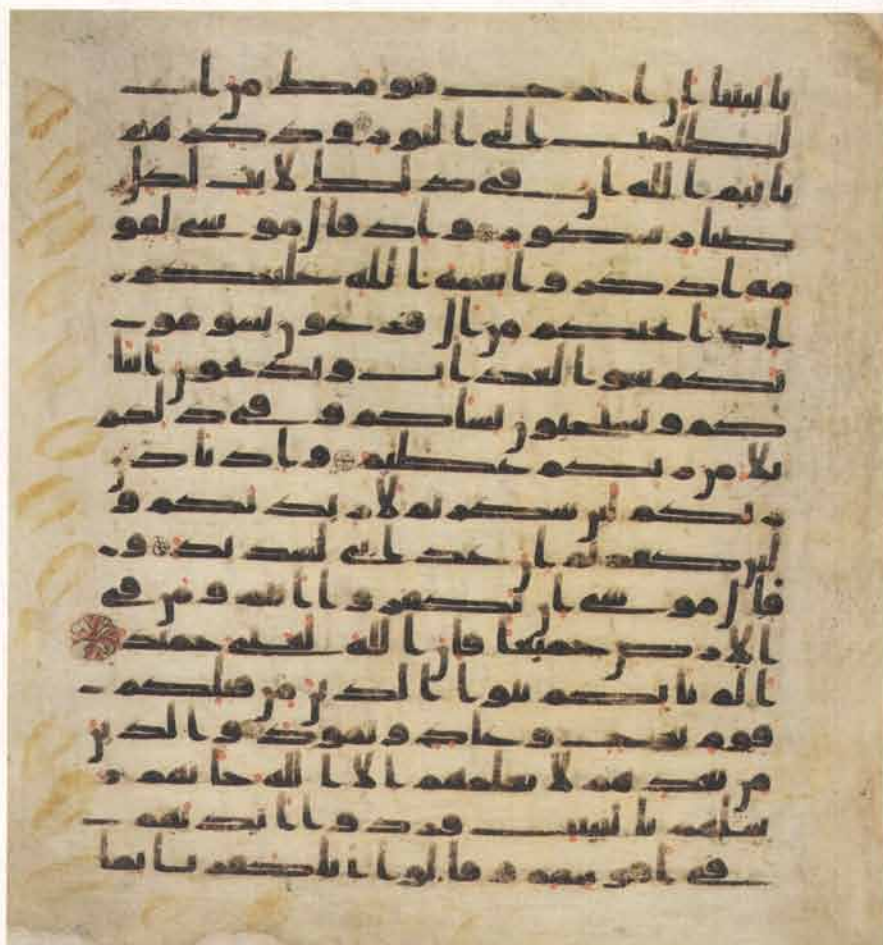 باييتنا ان اخرج قومك من ا
لظلمت الى النور وذكرهم
باييم الله ان في ذلك لايت لكل
صبار شكور واذ قال موسى لقو
مه اذكروا نعمه الله عليكم
اذ انجيكم من ال فرعون يسومو
نكم سوا العذاب ويذبحون ابنا
كم ويستحيون نساكم وفي ذلكم
بلا من ربكم عظيم واذ تاذن
ربكم لئن شكرتم لازيدنكم و
لئن كفرتم ان عذابي لشديد و
قال موسى ان تكفروا انتم ومن في
الارض جميعا فان الله لغني حميد
الم ياتكم نبوا الذين من قبلكم
قوم نوح وعاد وثمود والذين
من بعدهم لا يعلمهم الا الله جاتهم ر
سلهم بالبينت فردوا ايديهم
في افوههم وقالوا انا كفرنا بما